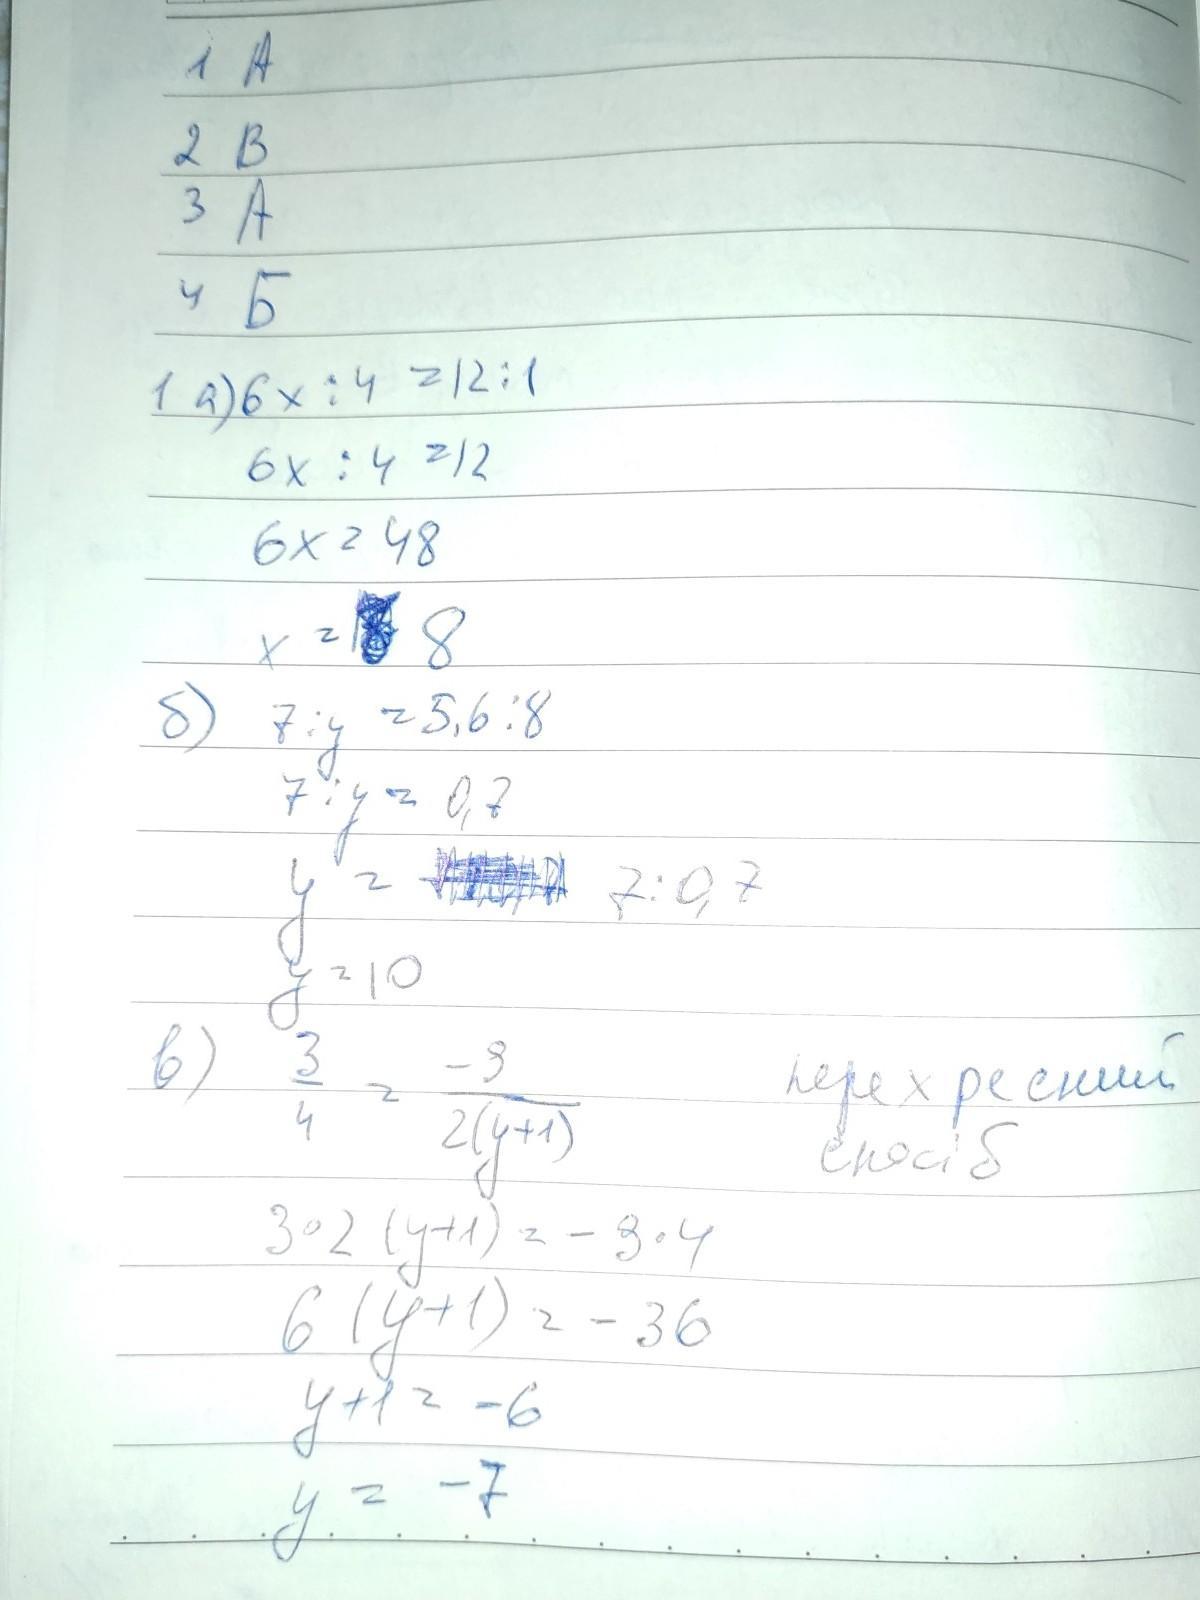 1 А
2 В
3 А
4 Б
1 а) 6x : 4 = 12 : 1
6x : 4 = 12
6x = 48
x = 8
б) 7 : y = 5,6 : 8
7 : y = 0,7
y = 7 : 0,7
y = 10
в) 3/4 = -9/2(y+1) перехресний
спосіб
3·2 (y+1) = -9·4
6 (y+1) = -36
y+1 = -6
y = -7